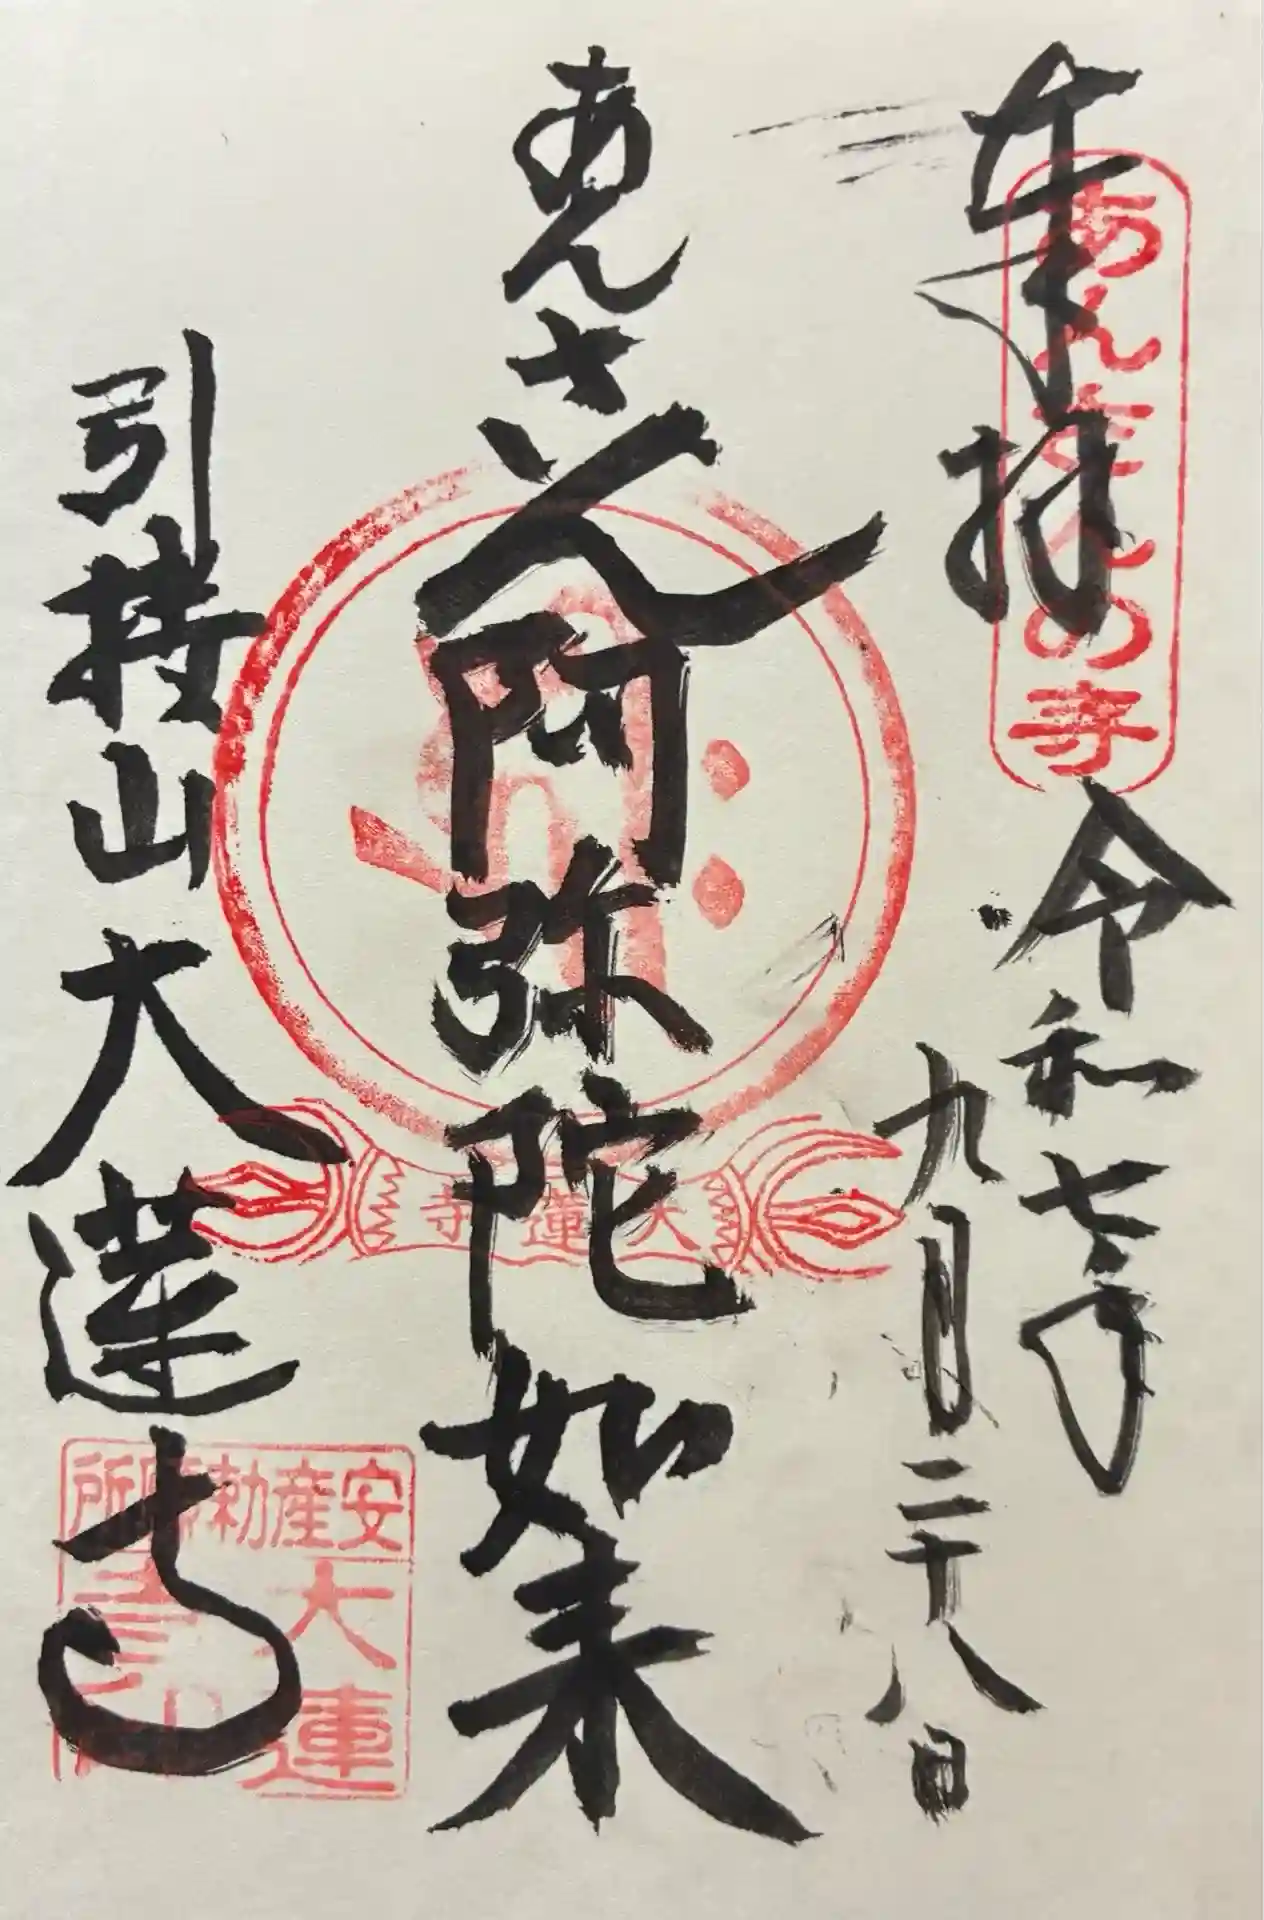 奉拝
あんさんの寺
令和七年
九月二十八日
あんさん
阿弥陀如来
大蓮寺
引接山大蓮寺
安産勅願所
大蓮
寺印